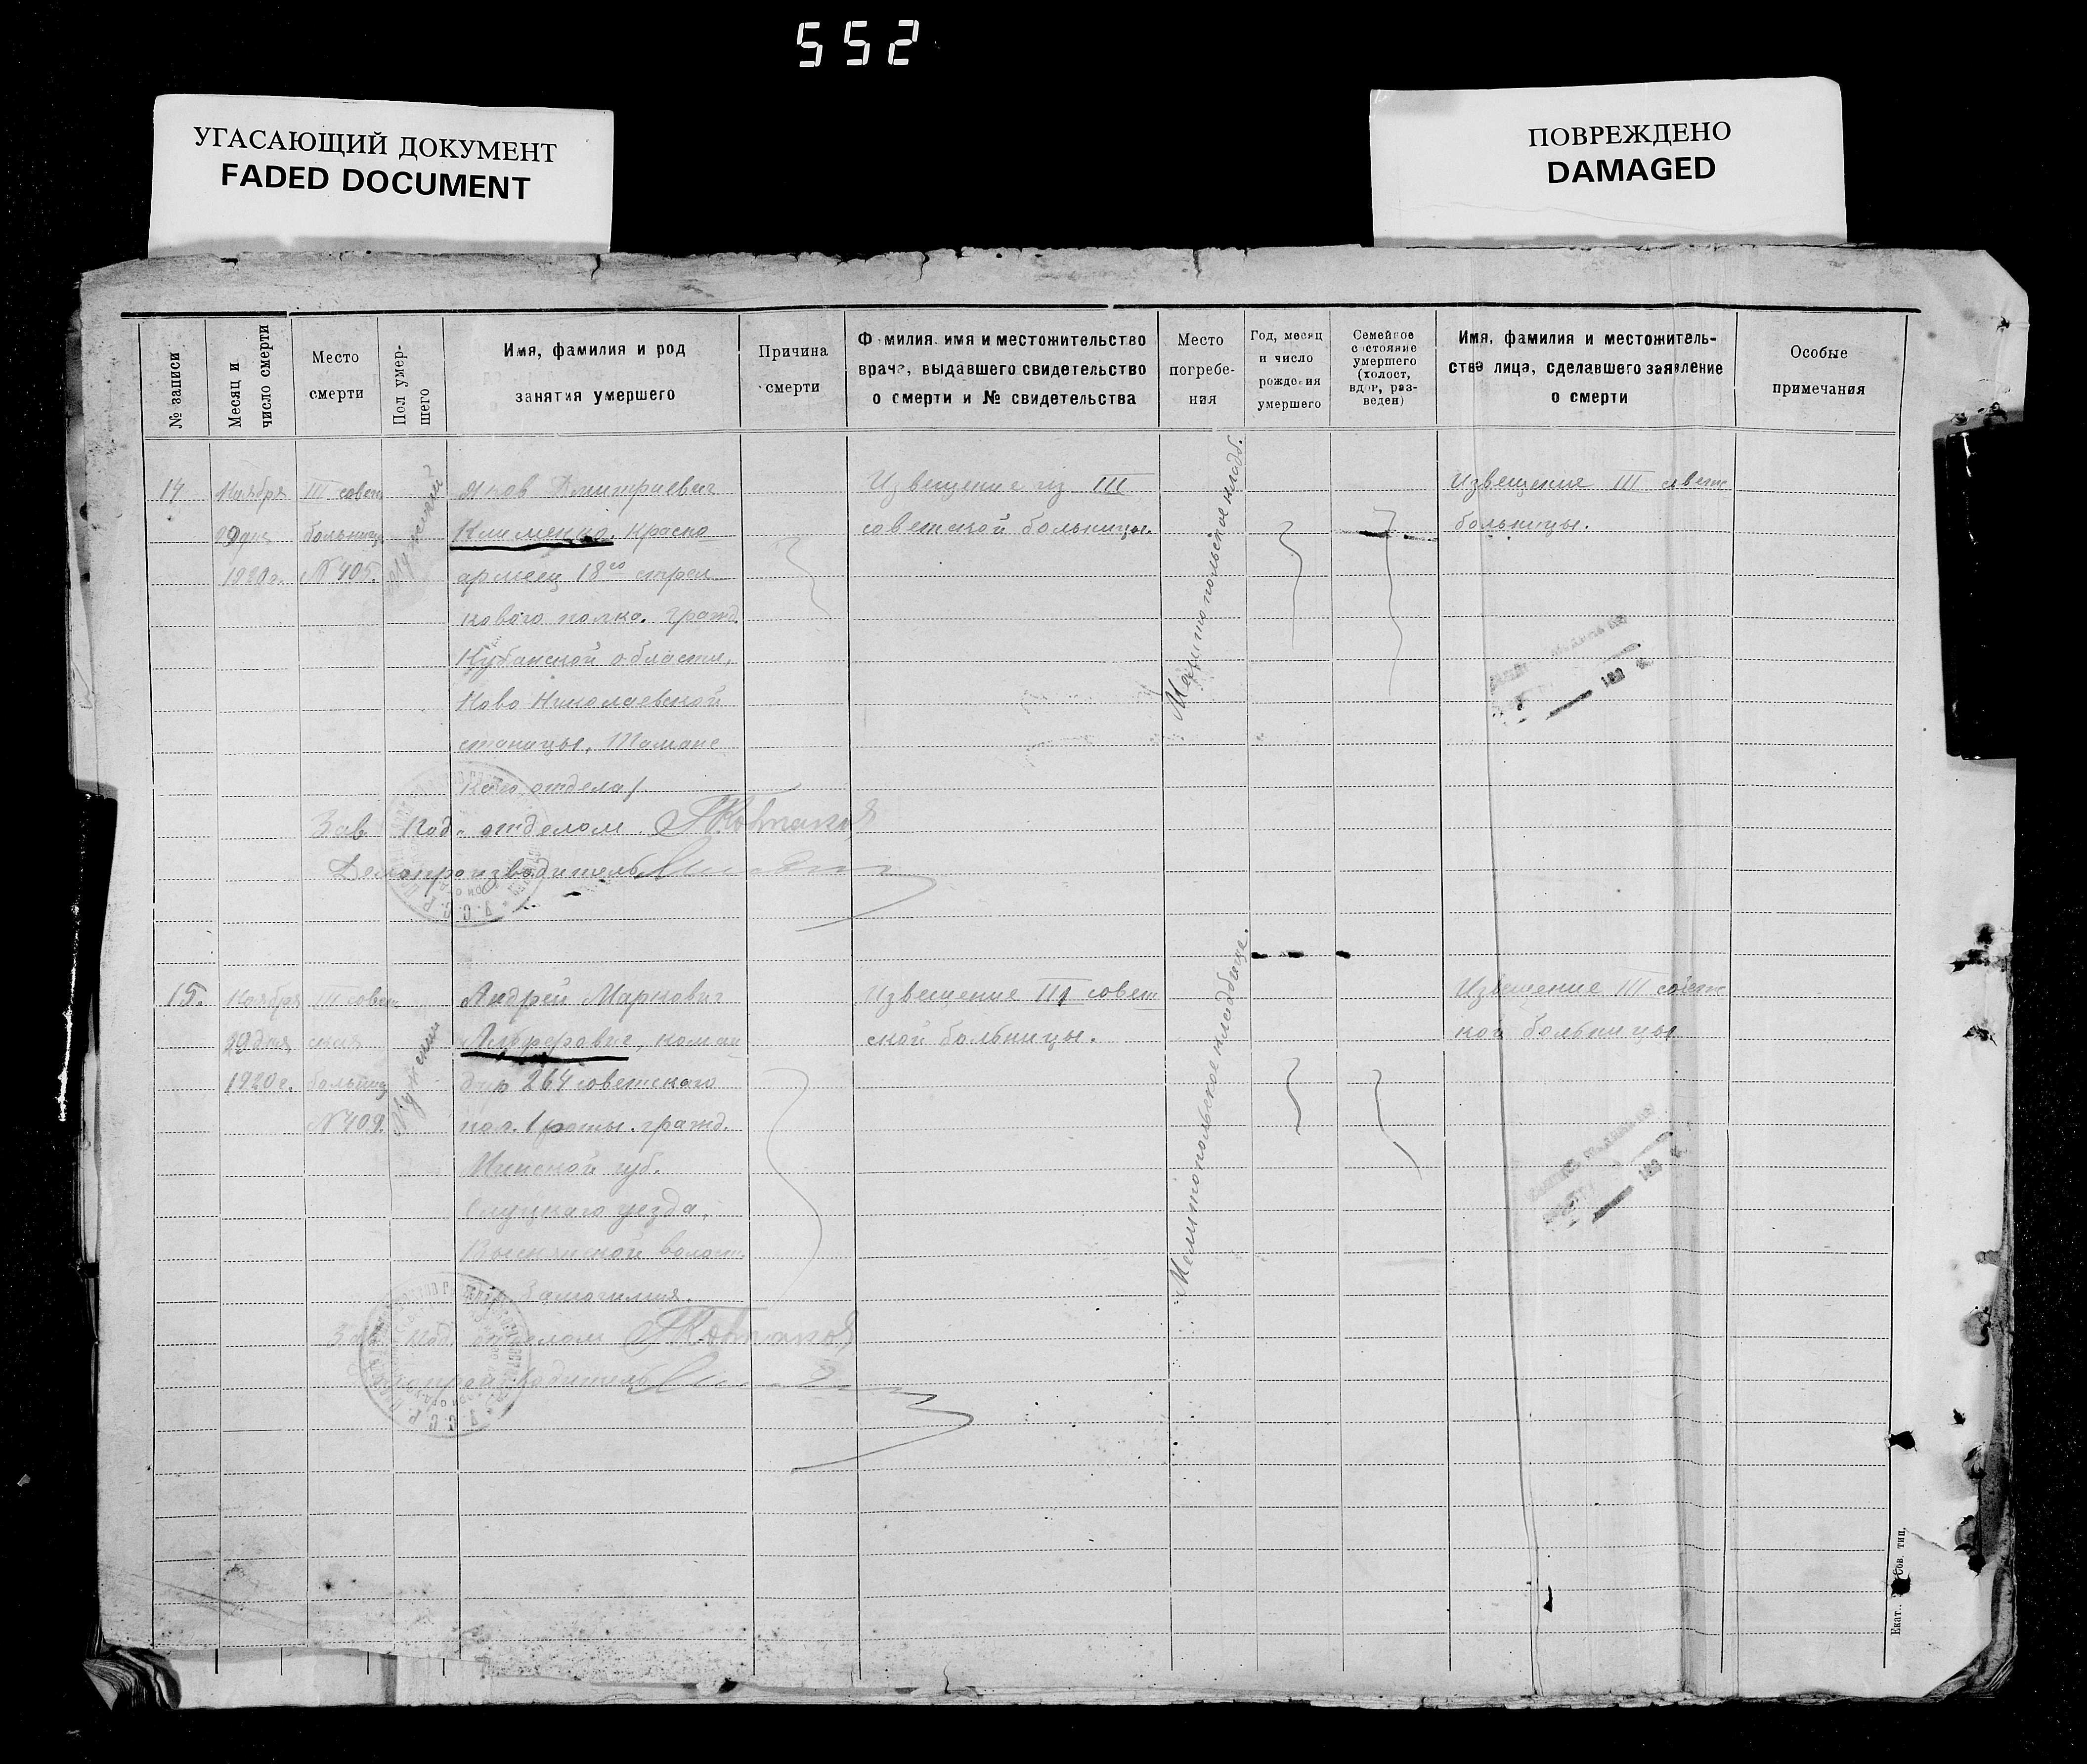 552
УГАСАЮЩИЙ ДОКУМЕНТ
FADED DOCUMENT
ПОВРЕЖДЕНО
DAMAGED
№ записи
Месяц и
число смерти
Место
смерти
Пол умер-
шего
Имя, фамилия и род
занятия умершего
Причина
смерти
Фамилия имя и местожительство
врача, выдавшего свидетельство
о смерти и № свидетельства
Место
погребе-
ния
Год, месяц
и число
рождения
умершего
Семейное
состояние
умершего
(холост,
вдов, раз-
веден)
Имя, фамилия и местожитель-
ства лица, сделавшего заявление
о смерти
Особые
примечания
14
Ноября
1920 г.
III совет
больниц
№ 405.
Мужской
Яков Дмитриевич
Клименко, красно
армеец 18го стрел
кового полка. гражд.
Кубанской области,
Ново Николаевской
станицы, Таманс
каго отдела
Извещение из III
советской больницы.
Мелитопольское кладб.
Извещение III советс
больницы.
Зав. Под. отделом
Делопроизводитель
15.
Ноября
29 дня
1920 г.
III совет
ская
больниц
№ 409.
Мужской
Андрей Маркович
264 советскаго
пол. 1 роты. гражд.
Минской губ.
Слуцкаго уезда,
волост.
Извещение III совет
ской больницы.
Мелитопольское кладбище.
Извещение III советс
кой больницы
Зав. Под. отделом
Делопроизводитель
У.С.С.Р.
У.С.С.Р.
Екат. тип.